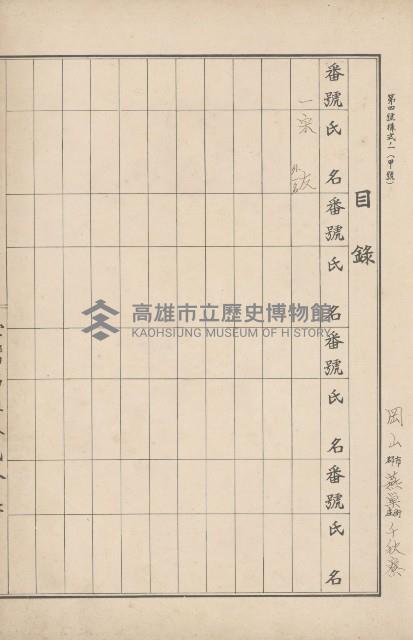 第四號樣式ノ一(甲號)
岡山郡市燕巢庄街千秋寮
目錄
番號 氏名 番號 氏名 番號 氏名 番號 氏名
一 宋友 外一名
高雄市立歷史博物館
KAOHSIUNG MUSEUM OF HISTORY